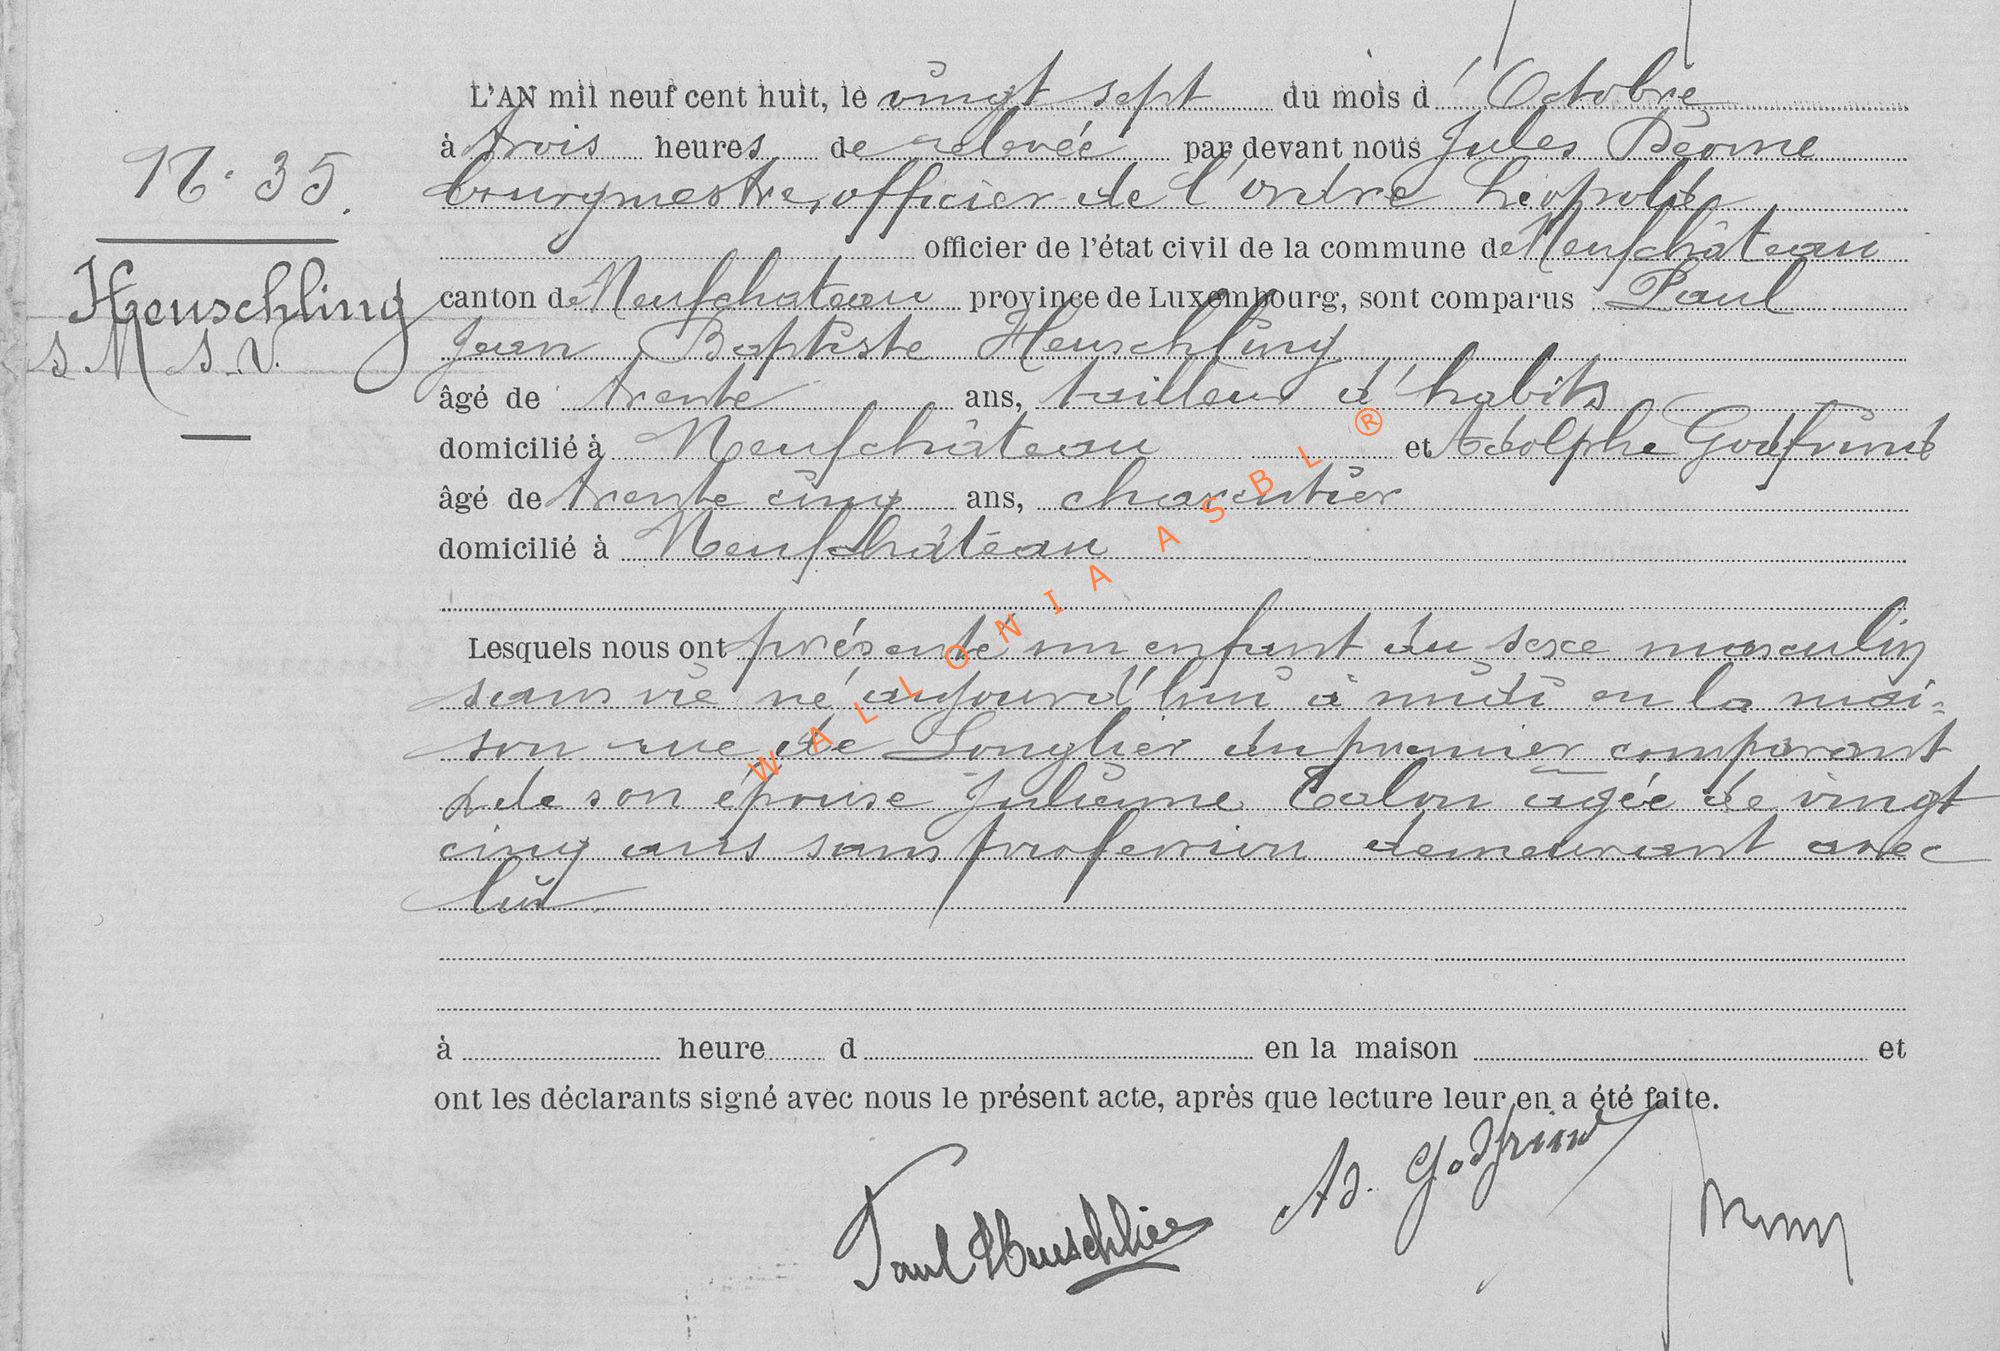 L'AN mil neuf cent huit, le vingt sept du mois d'Octobre
à trois heures de relevée par devant nous Jules
N. 35.
bourgmestre, officier de l'ordre Léopold
officier de l'état civil de la commune de Neufchâteau
Heuschling
canton de Neufchateau province de Luxembourg, sont comparus Paul
Jean Baptiste Heuschling
S. M S. V.
âgé de trente ans, tailleur d'habits
domicilié à Neufchâteau et Adolphe Godfrind
âgé de trente cinq ans,
domicilié à Neufchâteau
Lesquels nous ont présenté un enfant du sexe masculin
sans vie né aujourd'hui à midi en la mai-
son rue de Longlier du premier comparant
& de son épouse Julienne Calon âgée de vingt
cinq ans sans profession demeurant avec
lui.
à heure d en la maison et
ont les déclarants signé avec nous le présent acte, après que lecture leur en a été faite.
Ad. Godfrind
Paul Heuschling
WALLONIA ASBL ®